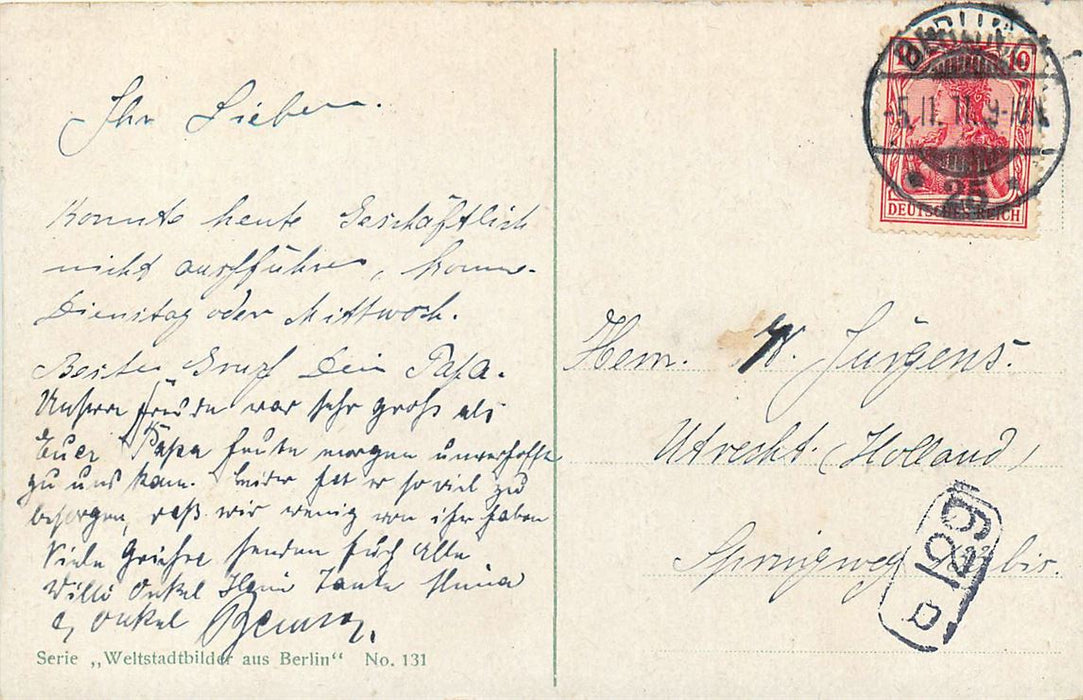 Ihr Lieben.
Konnte heute Geschäftlich
nicht ausführen, komme
Dienstag oder Mittwoch.
Besten Gruß Dein Papa.
Unsere Freude war sehr groß als
Euer Papa heute morgen unverhofft
zu uns kam. Leider hat er so viel zu
besorgen, daß wir wenig von ihm haben
Viele Grüße senden Euch Alle
Willi Onkel Tante
Onkel
Serie „Weltstadtbilder aus Berlin“ No. 131
BERLIN
-5.11.11. 9-10
* 25 *
10 10
DEUTSCHES REICH
Herrn. W. Jürgens.
Utrecht. (Holland)
Springweg bis.
a 129